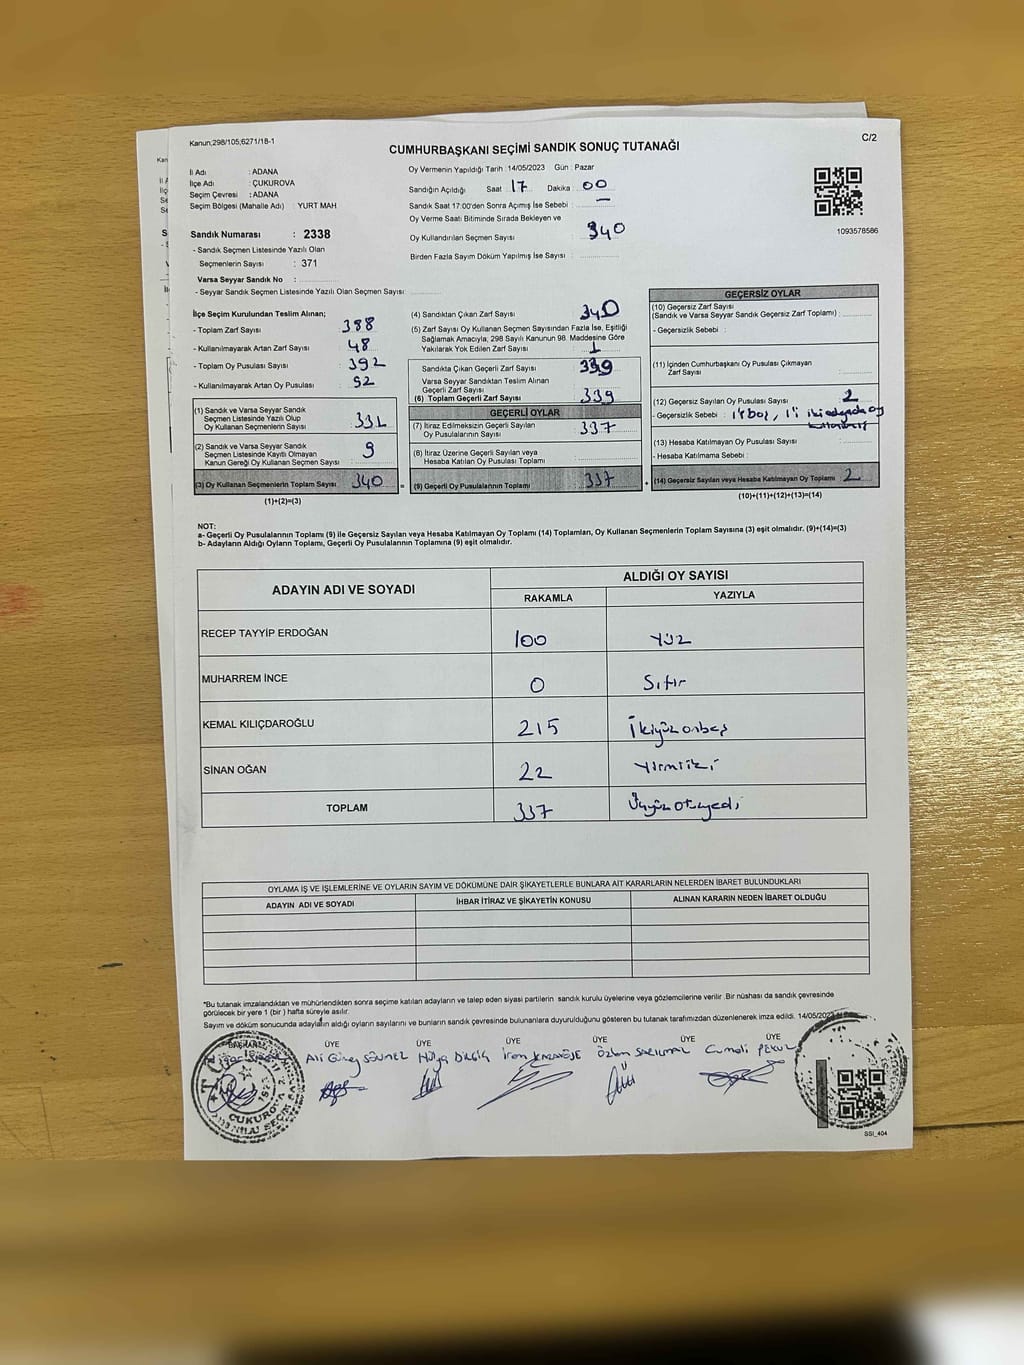 Kanun;298/105;6271/18-1
C/2
CUMHURBAŞKANI SEÇİMİ SANDIK SONUÇ TUTANAĞI
İl Adı : ADANA
İlçe Adı : ÇUKUROVA
Seçim Çevresi : ADANA
Seçim Bölgesi (Mahalle Adı) YURT MAH
Sandık Numarası : 2338
- Sandık Seçmen Listesinde Yazılı Olan
Seçmenlerin Sayısı : 371
Varsa Seyyar Sandık No :
- Seyyar Sandık Seçmen Listesinde Yazılı Olan Seçmen Sayısı:
Oy Vermenin Yapıldığı Tarih :14/05/2023 Gün : Pazar
Sandığın Açıldığı Saat 17 Dakika 00
Sandık Saat 17:00'den Sonra Açımış İse Sebebi : —
Oy Verme Saati Bitiminde Sırada Bekleyen ve
Oy Kullandırılan Seçmen Sayısı : 340
Birden Fazla Sayım Döküm Yapılmış İse Sayısı :
1093578586
İlçe Seçim Kurulundan Teslim Alınan;
- Toplam Zarf Sayısı : 388
- Kullanılmayarak Artan Zarf Sayısı : 48
- Toplam Oy Pusulası Sayısı : 392
- Kullanılmayarak Artan Oy Pusulası : 52
(1) Sandık ve Varsa Seyyar Sandık
Seçmen Listesinde Yazılı Olup
Oy Kullanan Seçmenlerin Sayısı : 331
(2) Sandık ve Varsa Seyyar Sandık
Seçmen Listesinde Kayıtlı Olmayan
Kanun Gereği Oy Kullanan Seçmen Sayısı : 9
(3) Oy Kullanan Seçmenlerin Toplam Sayısı : 340
(1)+(2)=(3)
(4) Sandıktan Çıkan Zarf Sayısı : 340
(5) Zarf Sayısı Oy Kullanan Seçmen Sayısından Fazla İse, Eşitliği
Sağlamak Amacıyla; 298 Sayılı Kanunun 98. Maddesine Göre
Yakılarak Yok Edilen Zarf Sayısı : 1
Sandıkta Çıkan Geçerli Zarf Sayısı : 339
Varsa Seyyar Sandıktan Teslim Alınan
Geçerli Zarf Sayısı
(6) Toplam Geçerli Zarf Sayısı : 339
GEÇERLİ OYLAR
(7) İtiraz Edilmeksizin Geçerli Sayılan
Oy Pusulalarının Sayısı : 337
(8) İtiraz Üzerine Geçerli Sayılan ve
Hesaba Katılan Oy Pusulası Toplamı :
(9) Geçerli Oy Pusulalarının Toplamı : 337
GEÇERSİZ OYLAR
(10) Geçersiz Zarf Sayısı
(Sandık ve Varsa Seyyar Sandık Geçersiz Zarf Toplamı) :
- Geçersizlik Sebebi :
(11) İçinden Cumhurbaşkanı Oy Pusulası Çıkmayan
Zarf Sayısı :
(12) Geçersiz Sayılan Oy Pusulası Sayısı : 2
- Geçersizlik Sebebi : 1'i boş, 1'i iki adayada oy
(13) Hesaba Katılmayan Oy Pusulası Sayısı :
- Hesaba Katılmama Sebebi :
(14) Geçersiz Sayılan veya Hesaba Katılmayan Oy Toplamı : 2
(10)+(11)+(12)+(13)=(14)
NOT:
a- Geçerli Oy Pusulalarının Toplamı (9) ile Geçersiz Sayılan veya Hesaba Katılmayan Oy Toplamı (14) Toplamları, Oy Kullanan Seçmenlerin Toplam Sayısına (3) eşit olmalıdır. (9)+(14)=(3)
b- Adayların Aldığı Oyların Toplamı, Geçerli Oy Pusulalarının Toplamına (9) eşit olmalıdır.
ADAYIN ADI VE SOYADI
ALDIĞI OY SAYISI
RAKAMLA YAZIYLA
RECEP TAYYİP ERDOĞAN 100 Yüz
MUHARREM İNCE 0 Sıfır
KEMAL KILIÇDAROĞLU 215 İkiyüzonbeş
SİNAN OĞAN 22 Yirmiiki
TOPLAM 337 Üçyüzotuzyedi
OYLAMA İŞ VE İŞLEMLERİNE VE OYLARIN SAYIM VE DÖKÜMÜNE DAİR ŞİKAYETLERLE BUNLARA AİT KARARLARIN NELERDEN İBARET BULUNDUKLARI
ADAYIN ADI VE SOYADI İHBAR İTİRAZ VE ŞİKAYETİN KONUSU ALINAN KARARIN NEDEN İBARET OLDUĞU
*Bu tutanak imzalandıktan ve mühürlendikten sonra seçime katılan adayların ve talep eden siyasi partilerin sandık kurulu üyelerine veya gözlemcilerine verilir .Bir nüshası da sandık çevresinde
görülecek bir yere 1 (bir ) hafta süreyle asılır.
Sayım ve döküm sonucunda adayların aldığı oyların sayılarını ve bunların sandık çevresinde bulunanlara duyurulduğunu gösteren bu tutanak tarafımızdan düzenlenerek imza edildi. 14/05/2023
BAŞKAN ÜYE ÜYE ÜYE ÜYE ÜYE
Ali Güney SÖNMEZ Hülya DİLGİÇ İrem KARAKÖSE Özlem SARIÜNAL Cumali PEKUZ
T.C.
ÇUKUROVA
SSI_404